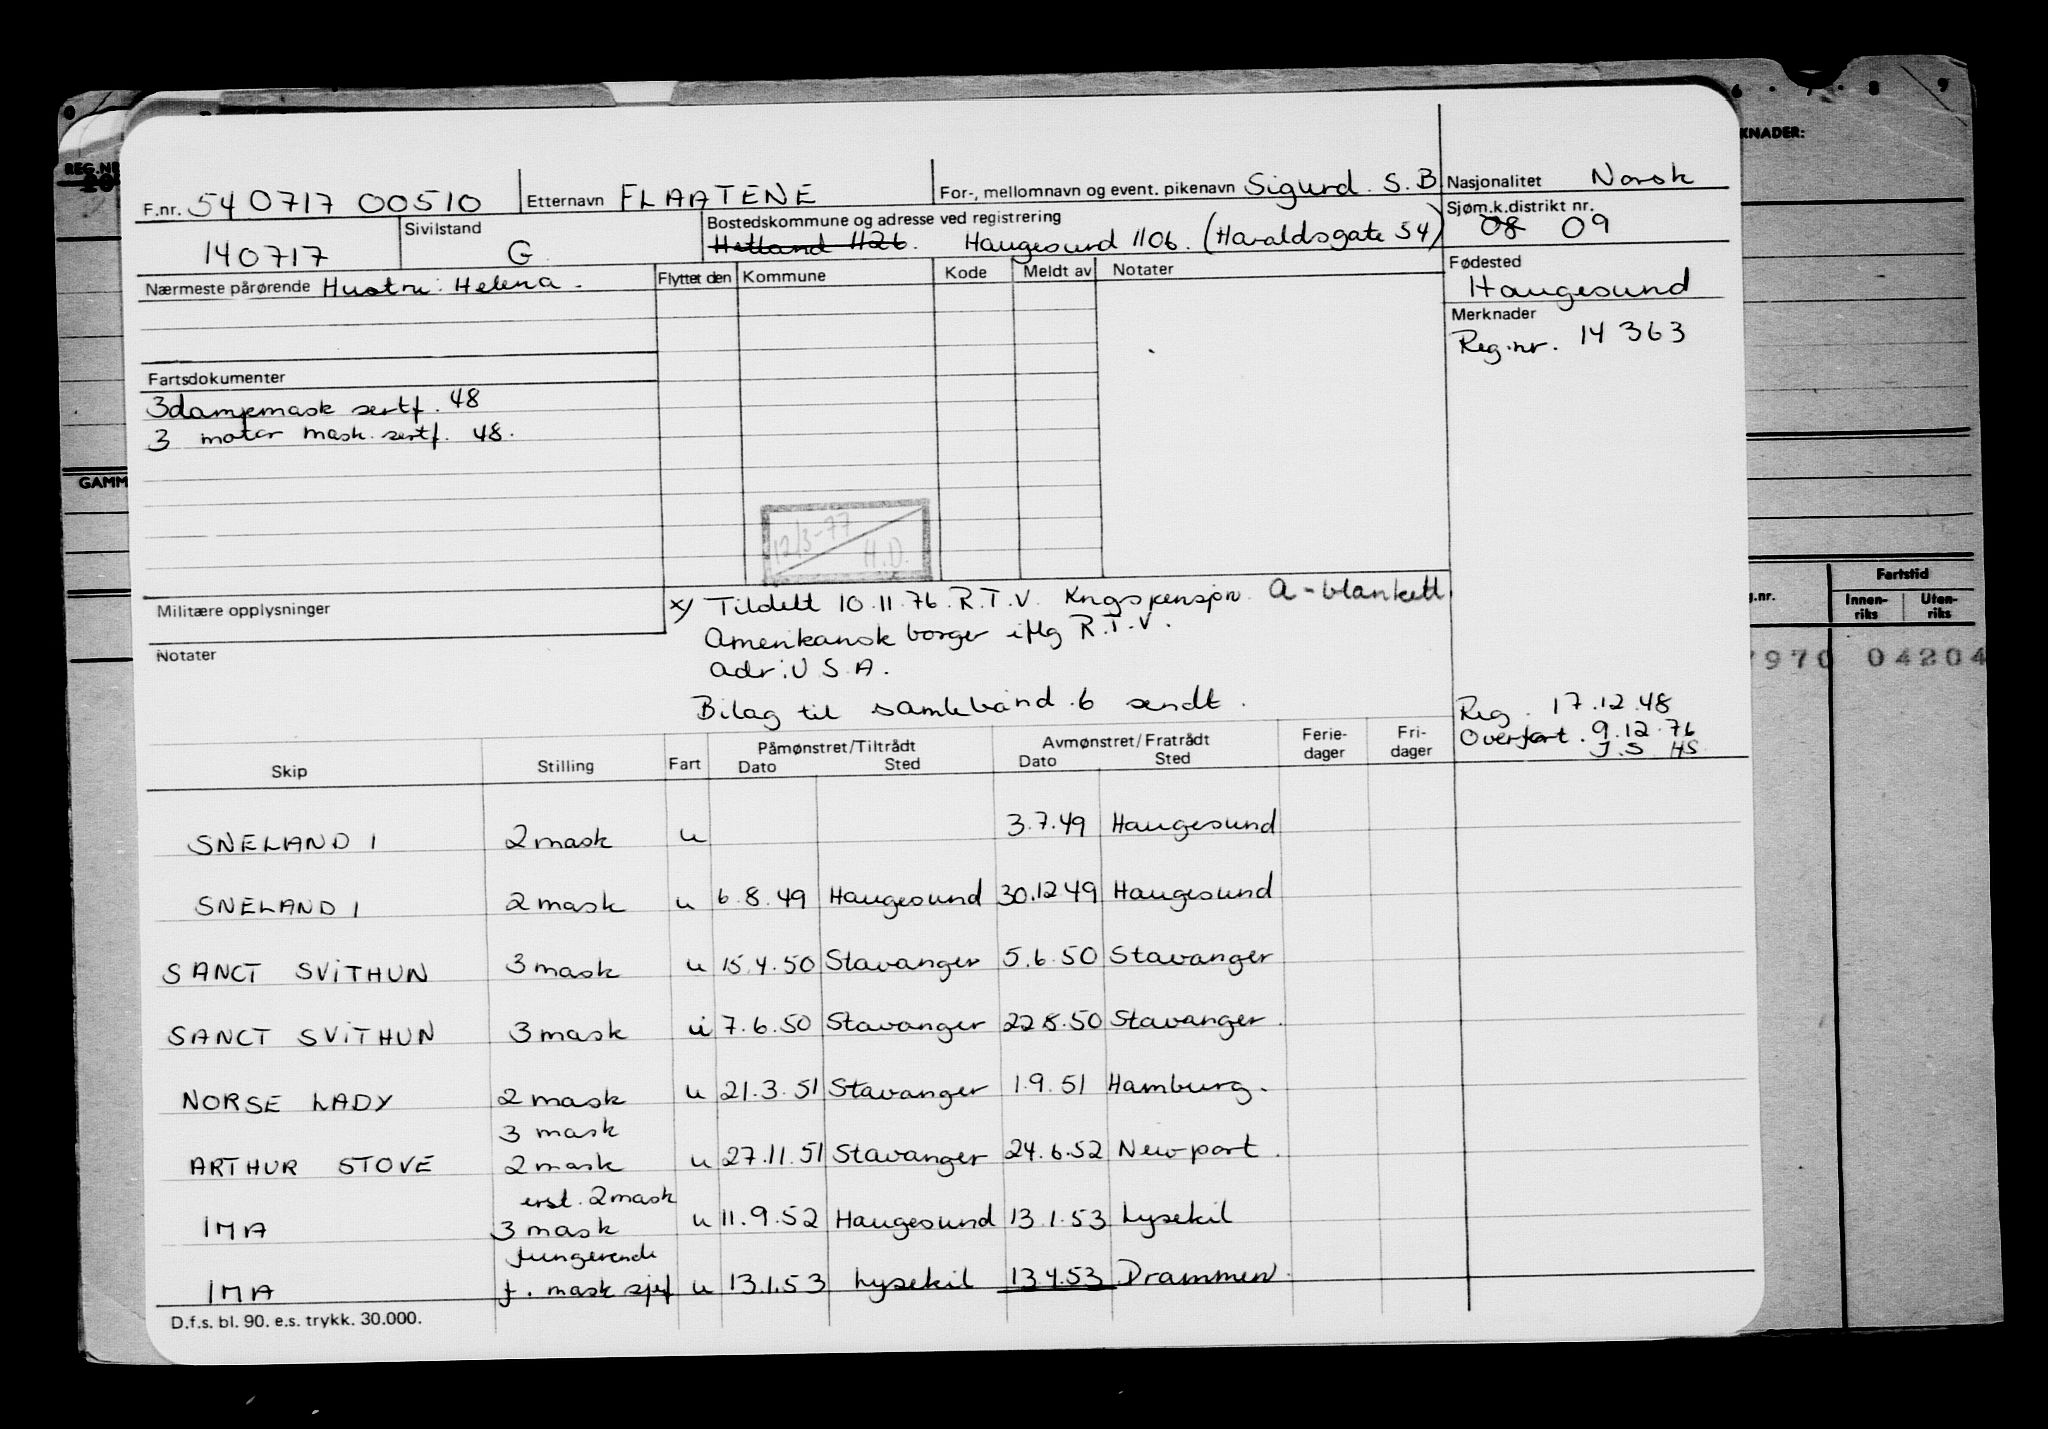 6 . 7 . 8 9
REG.NR
KNADER:
F.nr. 54 0717 00510 Etternavn FLAATENE For-, mellomnavn og event. pikenavn Sigurd. S.B. Nasjonalitet Norsk
140717 Sivilstand G Bostedskommune og adresse ved registrering Hetland 1126. Haugesund 1106. (Haraldsgate 54) Sjøm.k.distrikt nr. 08 09
Nærmeste pårørende Hustru: Helena. Flyttet den Kommune Kode Meldt av Notater Fødested
Haugesund
Merknader
Reg.nr. 14 363
Fartsdokumenter
3dampmask sertf. 48
3 motor mask. sertf. 48.
GAMM
12/3-77
H.D.
Militære opplysninger
x) Tildelt 10.11.76. R.T.V. Krigspensjon. A-blankett.
Amerikansk borger iflg R.T.V.
Notater
adr: U S.A.
Bilag til samlebånd.6 sendt.
Reg. 17.12.48
Overført. 9.12.76
J.S HS
Fartstid
.nr. Innen-riks Uten-riks
970 04204
Skip Stilling Fart Påmønstret/Tiltrådt Dato Sted Avmønstret/Fratrådt Dato Sted Ferie-dager Fri-dager
SNELAND 1 2 mask u 3.7.49 Haugesund
SNELAND 1 2 mask u 6.8.49 Haugesund 30.12 49 Haugesund
SANCT SVITHUN 3 mask u 15.4.50 Stavanger 5.6.50 Stavanger
SANCT SVITHUN 3 mask i 7.6.50 Stavanger 22.8.50 Stavanger.
NORSE LADY 2 mask u 21.3.51 Stavanger 1.9.51 Hamburg.
3 mask
ARTHUR STOVE 2 mask u 27.11.51 Stavanger 24.6.52 Newport.
erst. 2 mask
IMA 3 mask u 11.9.52 Haugesund 13.1.53 Lysekil
fungerende
IMA f. mask sjef u 13.1.53 Lysekil 13.4.53 Drammen.
D.f.s. bl. 90. e.s. trykk. 30.000.